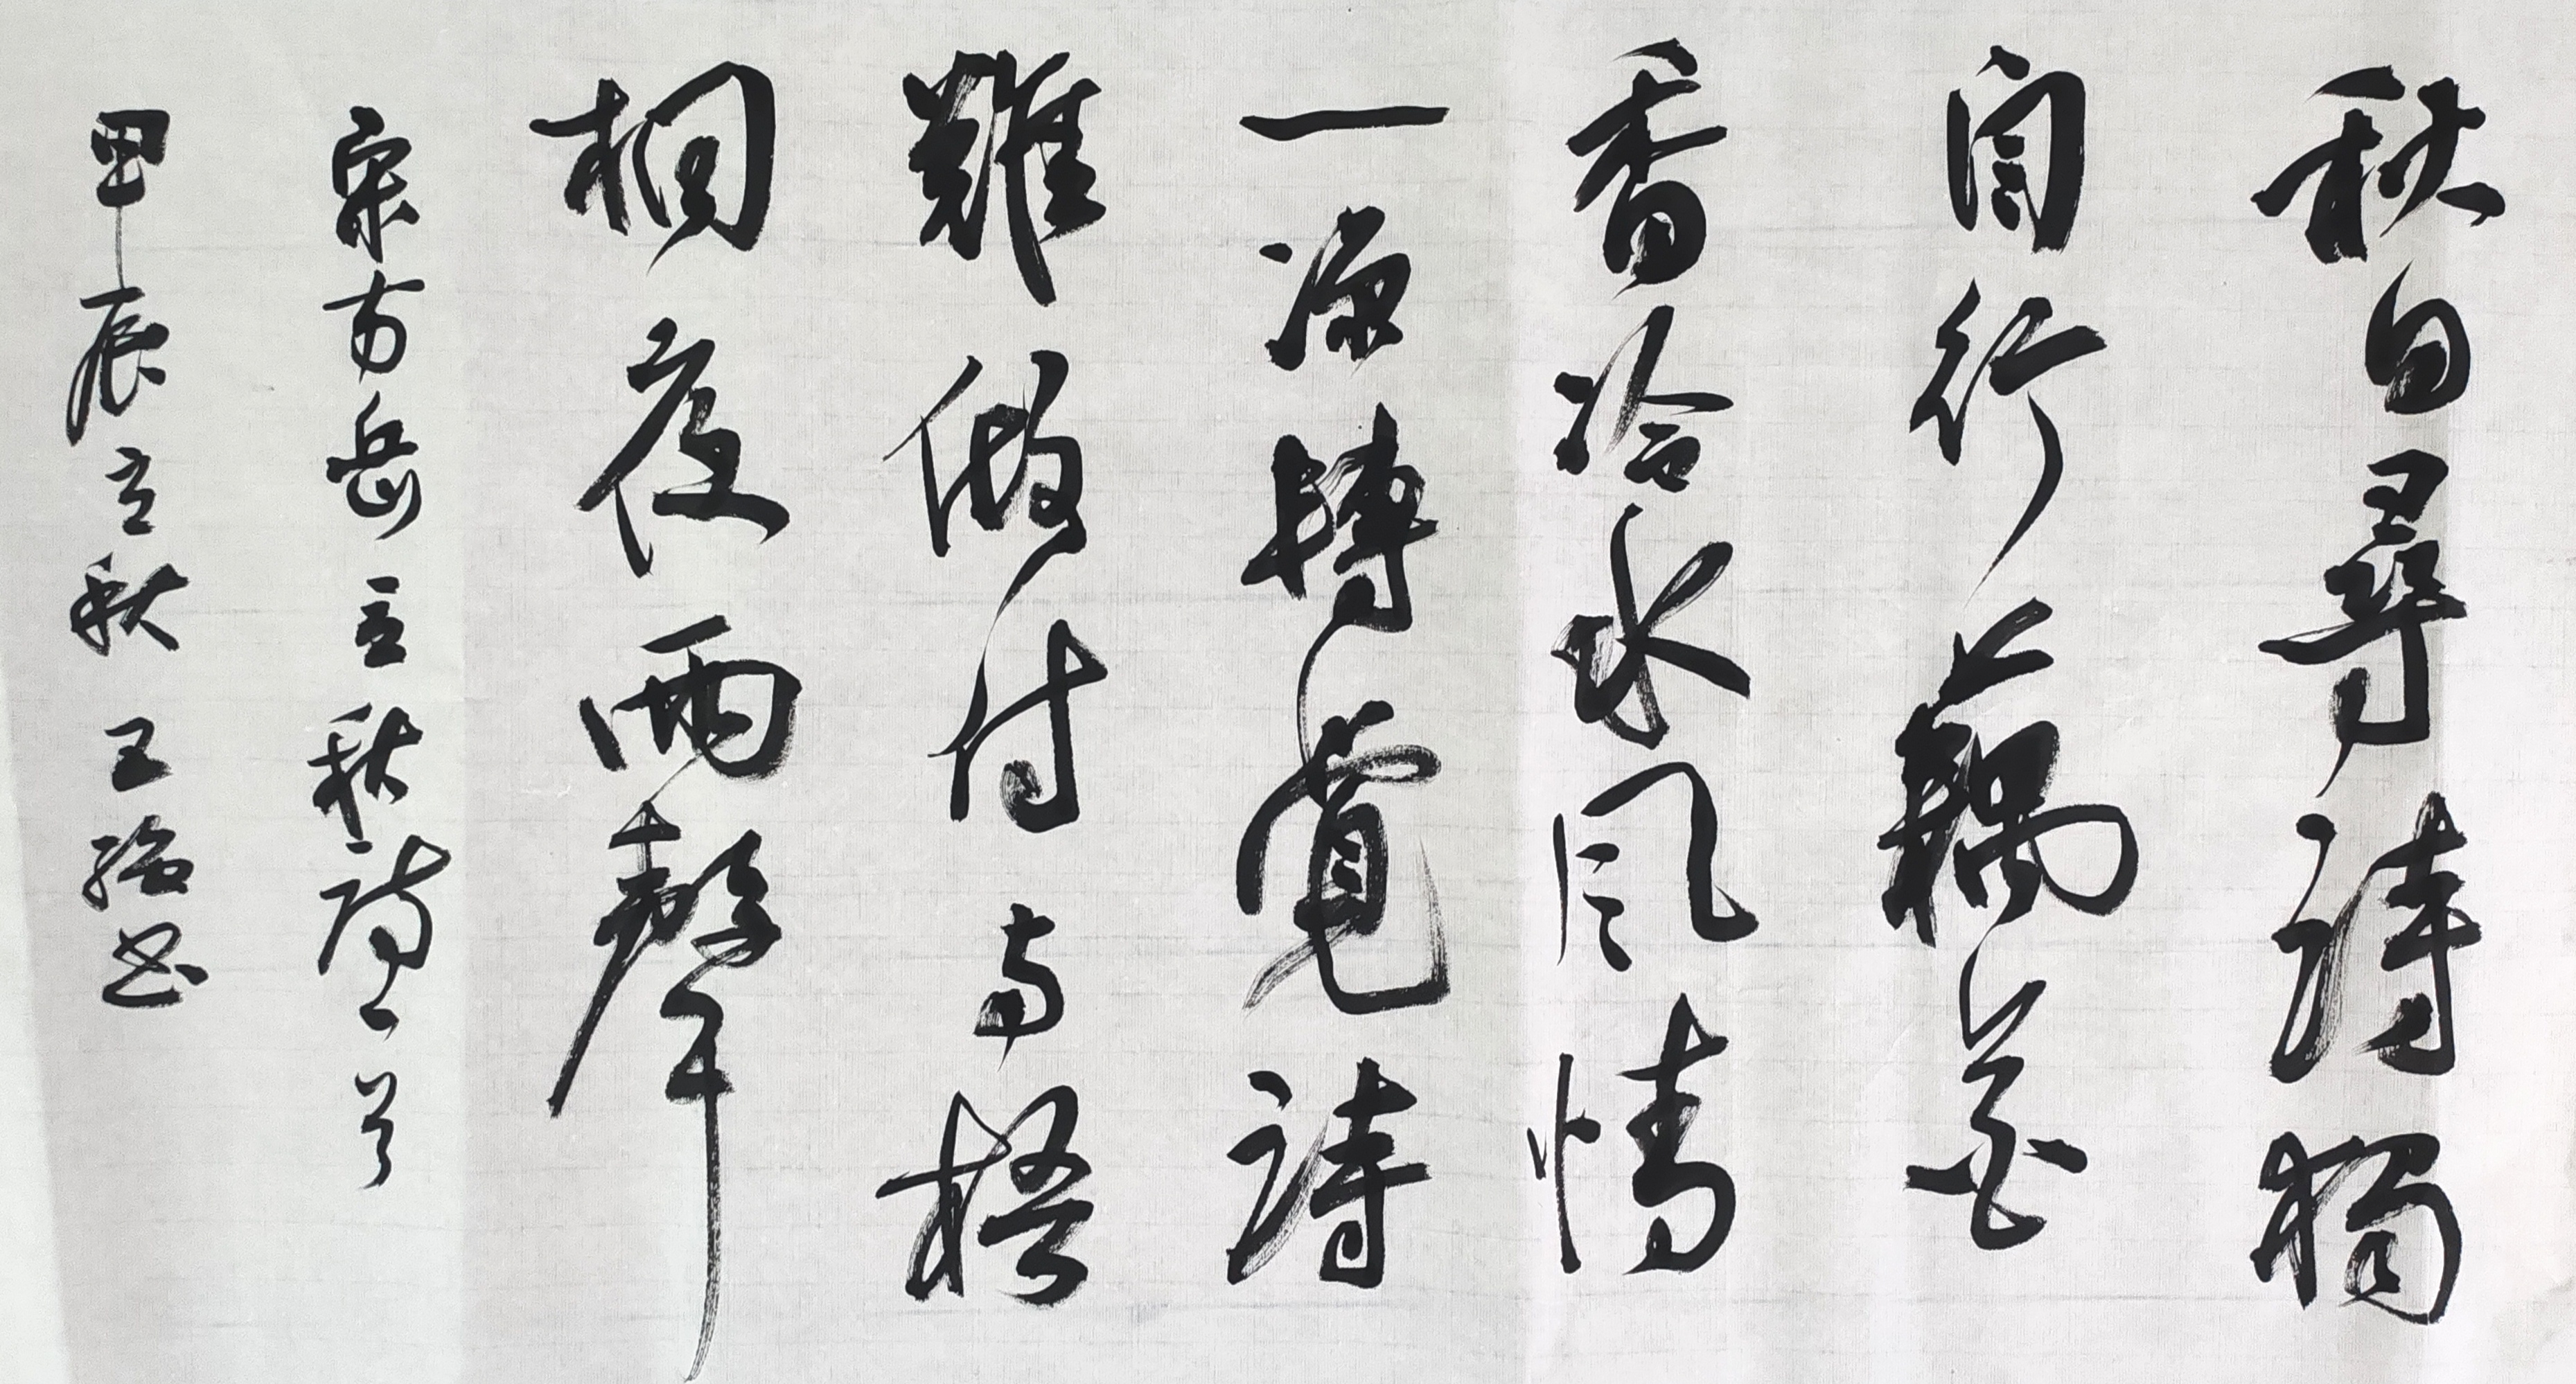 秋日尋詩獨
自行藕花
香冷水風情
一涼轉覺詩
難做付与梧
桐夜雨聲
宋方岳立秋詩一首
甲辰立秋王瑜书